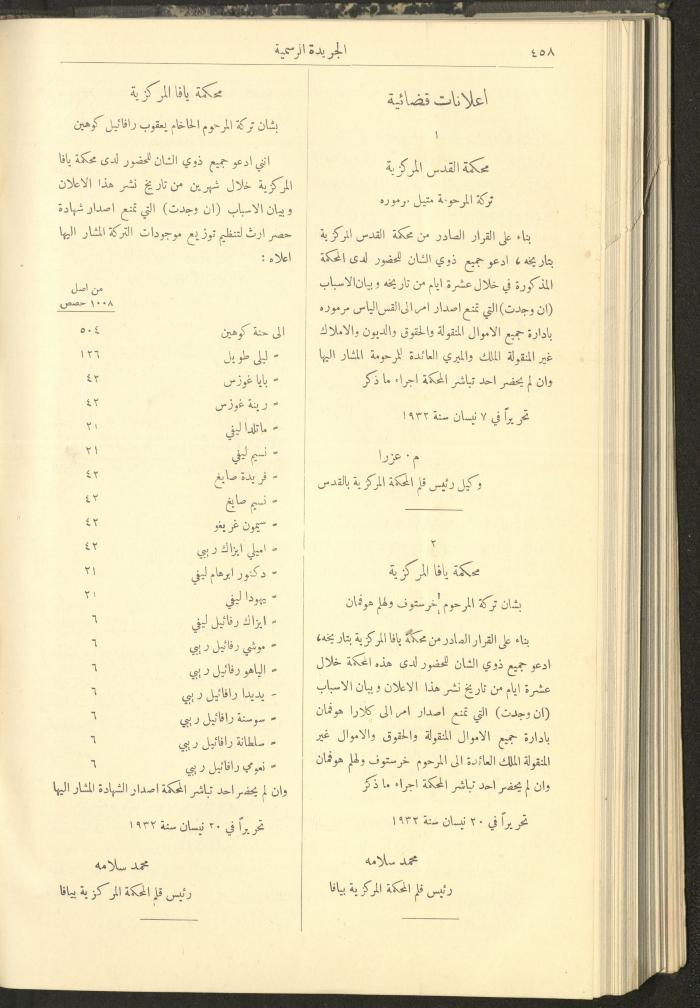 ٤٥٨
الجريدة الرسمية
اعلانات قضائية
١
محكمة القدس المركزية
تركة المرحومة متيل مرموره
بناء على القرار الصادر من محكمة القدس المركزية
بتاريخه، ادعو جميع ذوي الشان للحضور لدى المحكمة
المذكورة في خلال عشرة ايام من تاريخه وبيان الاسباب
(ان وجدت) التي تمنع اصدار امر الى القس الياس مرموره
بادارة جميع الاموال المنقولة والحقوق والديون والاملاك
غير المنقولة الملك والميري العائدة للمرحومة المشار اليها
وان لم يحضر احد تباشر المحكمة اجراء ما ذكر
تحريراً في ٧ نيسان سنة ١٩٣٢
م. عزرا
وكيل رئيس قلم المحكمة المركزية بالقدس
٢
محكمة يافا المركزية
بشان تركة المرحوم خرستوف ولهلم هوفمان
بناء على القرار الصادر من محكمة يافا المركزية بتاريخه،
ادعو جميع ذوي الشان للحضور لدى هذه المحكمة خلال
عشرة ايام من تاريخ نشر هذا الاعلان وبيان الاسباب
(ان وجدت) التي تمنع اصدار امر الى كلارا هوفمان
بادارة جميع الاموال المنقولة والحقوق والاموال غير
المنقولة الملك العائدة الى المرحوم خرستوف ولهلم هوفمان
وان لم يحضر احد تباشر المحكمة اجراء ما ذكر
تحريراً في ٢٠ نيسان سنة ١٩٣٢
محمد سلامه
رئيس قلم المحكمة المركزية بيافا
محكمة يافا المركزية
بشان تركة المرحوم الحاخام يعقوب رافائيل كوهين
انني ادعو جميع ذوي الشان للحضور لدى محكمة يافا
المركزية خلال شهرين من تاريخ نشر هذا الاعلان
وبيان الاسباب (ان وجدت) التي تمنع اصدار شهادة
حصر ارث لتنظيم توزيع موجودات التركة المشار اليها
اعلاه :
من اصل
١٠٠٨ حصص
الى حنة كوهين ٥٠٤
- ليلى طويل ١٢٦
- بايا غوزس ٤٢
- رينة غوزس ٤٢
- ماتلدا ليفي ٢١
- نسيم ليفي ٢١
- فريدة صايغ ٤٢
- نسيم صايغ ٤٢
- سيمون غريغو ٤٢
- اميلي ايزاك ربي ٤٢
- دكتور ابرهام ليفي ٢١
- يهودا ليفي ٢١
- ايزاك رفائيل ليفي ٦
- موشي رفائيل ربي ٦
- الياهو رفائيل ربي ٦
- يديدا رافائيل ربي ٦
- سوسنة رافائيل ربي ٦
- سلطانة رافائيل ربي ٦
- نعومي رافائيل ربي ٦
وان لم يحضر احد تباشر المحكمة اصدار الشهادة المشار اليها
تحريراً في ٢٠ نيسان سنة ١٩٣٢
محمد سلامه
رئيس قلم المحكمة المركزية بيافا